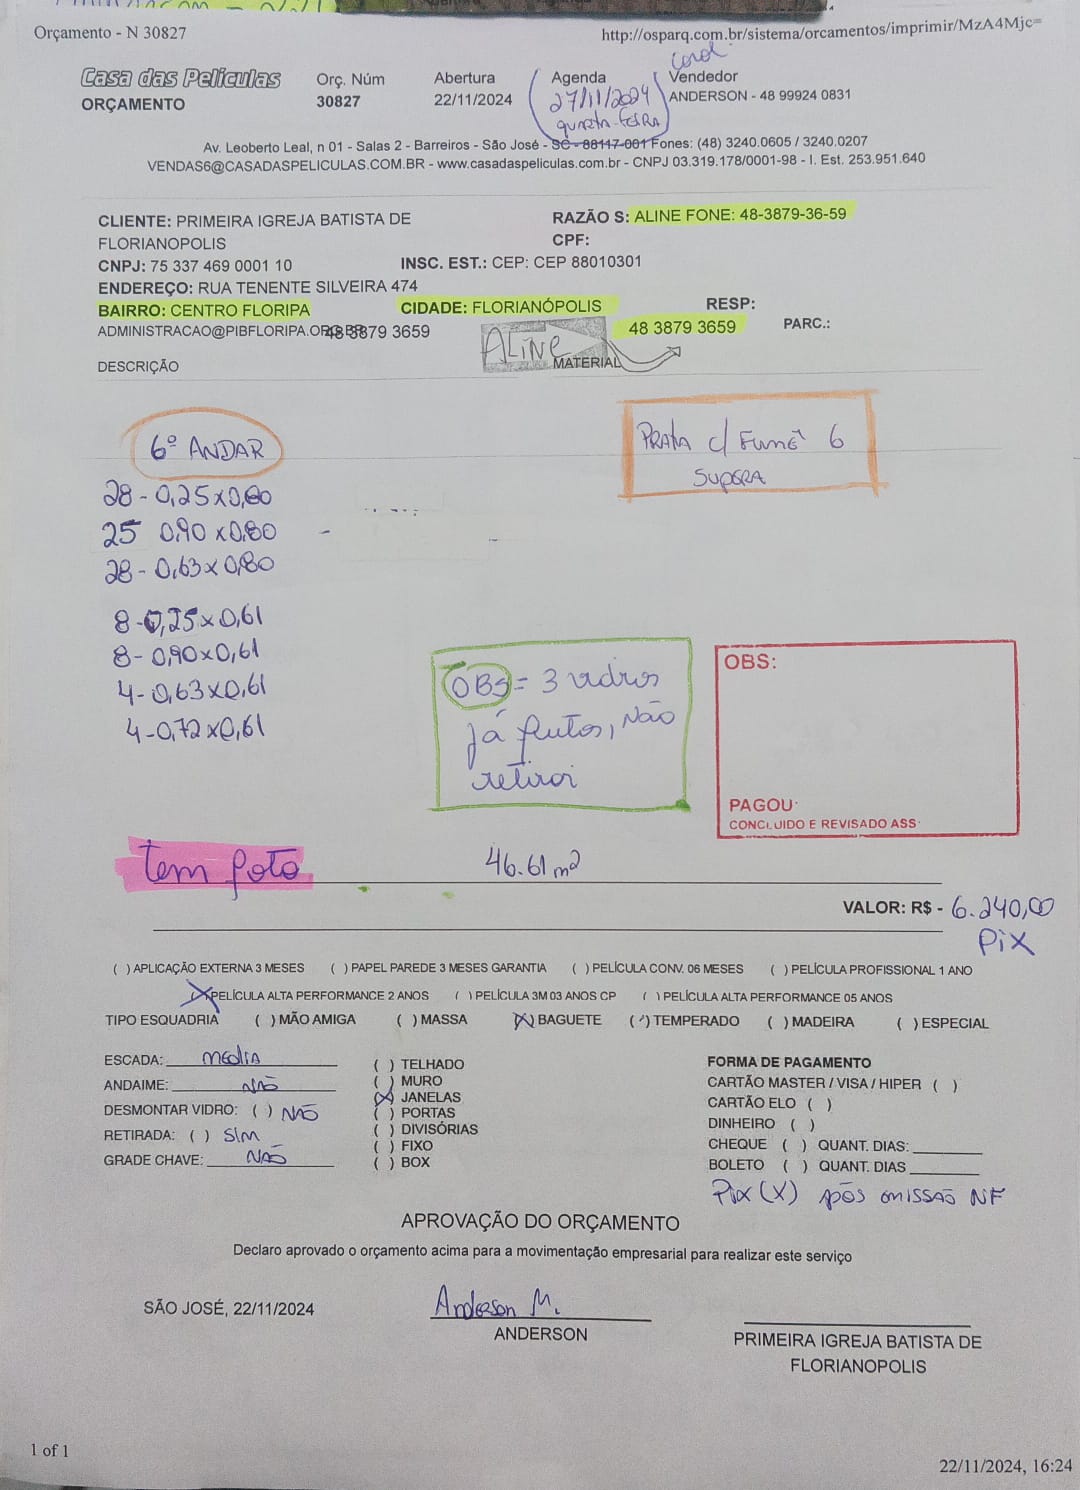 Orçamento - N 30827
http://osparq.com.br/sistema/orcamentos/imprimir/MzA4Mjc=
Casa das Películas
ORÇAMENTO
Orç. Núm
30827
Abertura
22/11/2024
Agenda
27/11/2024
quarta-feira
Carol
Vendedor
ANDERSON - 48 99924 0831
Av. Leoberto Leal, n 01 - Salas 2 - Barreiros - São José - SC - 88117-001 Fones: (48) 3240.0605 / 3240.0207
VENDAS6@CASADASPELICULAS.COM.BR - www.casadaspeliculas.com.br - CNPJ 03.319.178/0001-98 - I. Est. 253.951.640
CLIENTE: PRIMEIRA IGREJA BATISTA DE
FLORIANOPOLIS
RAZÃO S: ALINE FONE: 48-3879-36-59
CPF:
CNPJ: 75 337 469 0001 10
INSC. EST.: CEP: CEP 88010301
ENDEREÇO: RUA TENENTE SILVEIRA 474
BAIRRO: CENTRO FLORIPA
CIDADE: FLORIANÓPOLIS
RESP:
ADMINISTRACAO@PIBFLORIPA.ORG.BR
48 3879 3659
Aline
48 3879 3659
PARC.:
DESCRIÇÃO
MATERIAL
6º ANDAR
PRATA c/ Fumê 6
SUPERA
28 - 0,25 x 0,80
25 0,90 x 0,80
28 - 0,63 x 0,80
8 - 0,25 x 0,61
8 - 0,90 x 0,61
4 - 0,63 x 0,61
4 - 0,72 x 0,61
OBS = 3 vidros
já feitos, Não
retirar
OBS:
PAGOU:
CONCLUIDO E REVISADO ASS:
tem foto
46.61 m²
VALOR: R$ - 6.240,00
Pix
( ) APLICAÇÃO EXTERNA 3 MESES ( ) PAPEL PAREDE 3 MESES GARANTIA ( ) PELÍCULA CONV. 06 MESES ( ) PELÍCULA PROFISSIONAL 1 ANO
(X) PELÍCULA ALTA PERFORMANCE 2 ANOS ( ) PELÍCULA 3M 03 ANOS CP ( ) PELÍCULA ALTA PERFORMANCE 05 ANOS
TIPO ESQUADRIA ( ) MÃO AMIGA ( ) MASSA (X) BAGUETE ( ) TEMPERADO ( ) MADEIRA ( ) ESPECIAL
ESCADA: media
ANDAIME: NÃO
DESMONTAR VIDRO: ( ) NÃO
RETIRADA: ( ) SIM
GRADE CHAVE: NÃO
( ) TELHADO
( ) MURO
(X) JANELAS
( ) PORTAS
( ) DIVISÓRIAS
( ) FIXO
( ) BOX
FORMA DE PAGAMENTO
CARTÃO MASTER / VISA / HIPER ( )
CARTÃO ELO ( )
DINHEIRO ( )
CHEQUE ( ) QUANT. DIAS:
BOLETO ( ) QUANT. DIAS
Pix (X) após omissão NF
APROVAÇÃO DO ORÇAMENTO
Declaro aprovado o orçamento acima para a movimentação empresarial para realizar este serviço
SÃO JOSÉ, 22/11/2024
Anderson M.
ANDERSON
PRIMEIRA IGREJA BATISTA DE
FLORIANOPOLIS
1 of 1
22/11/2024, 16:24